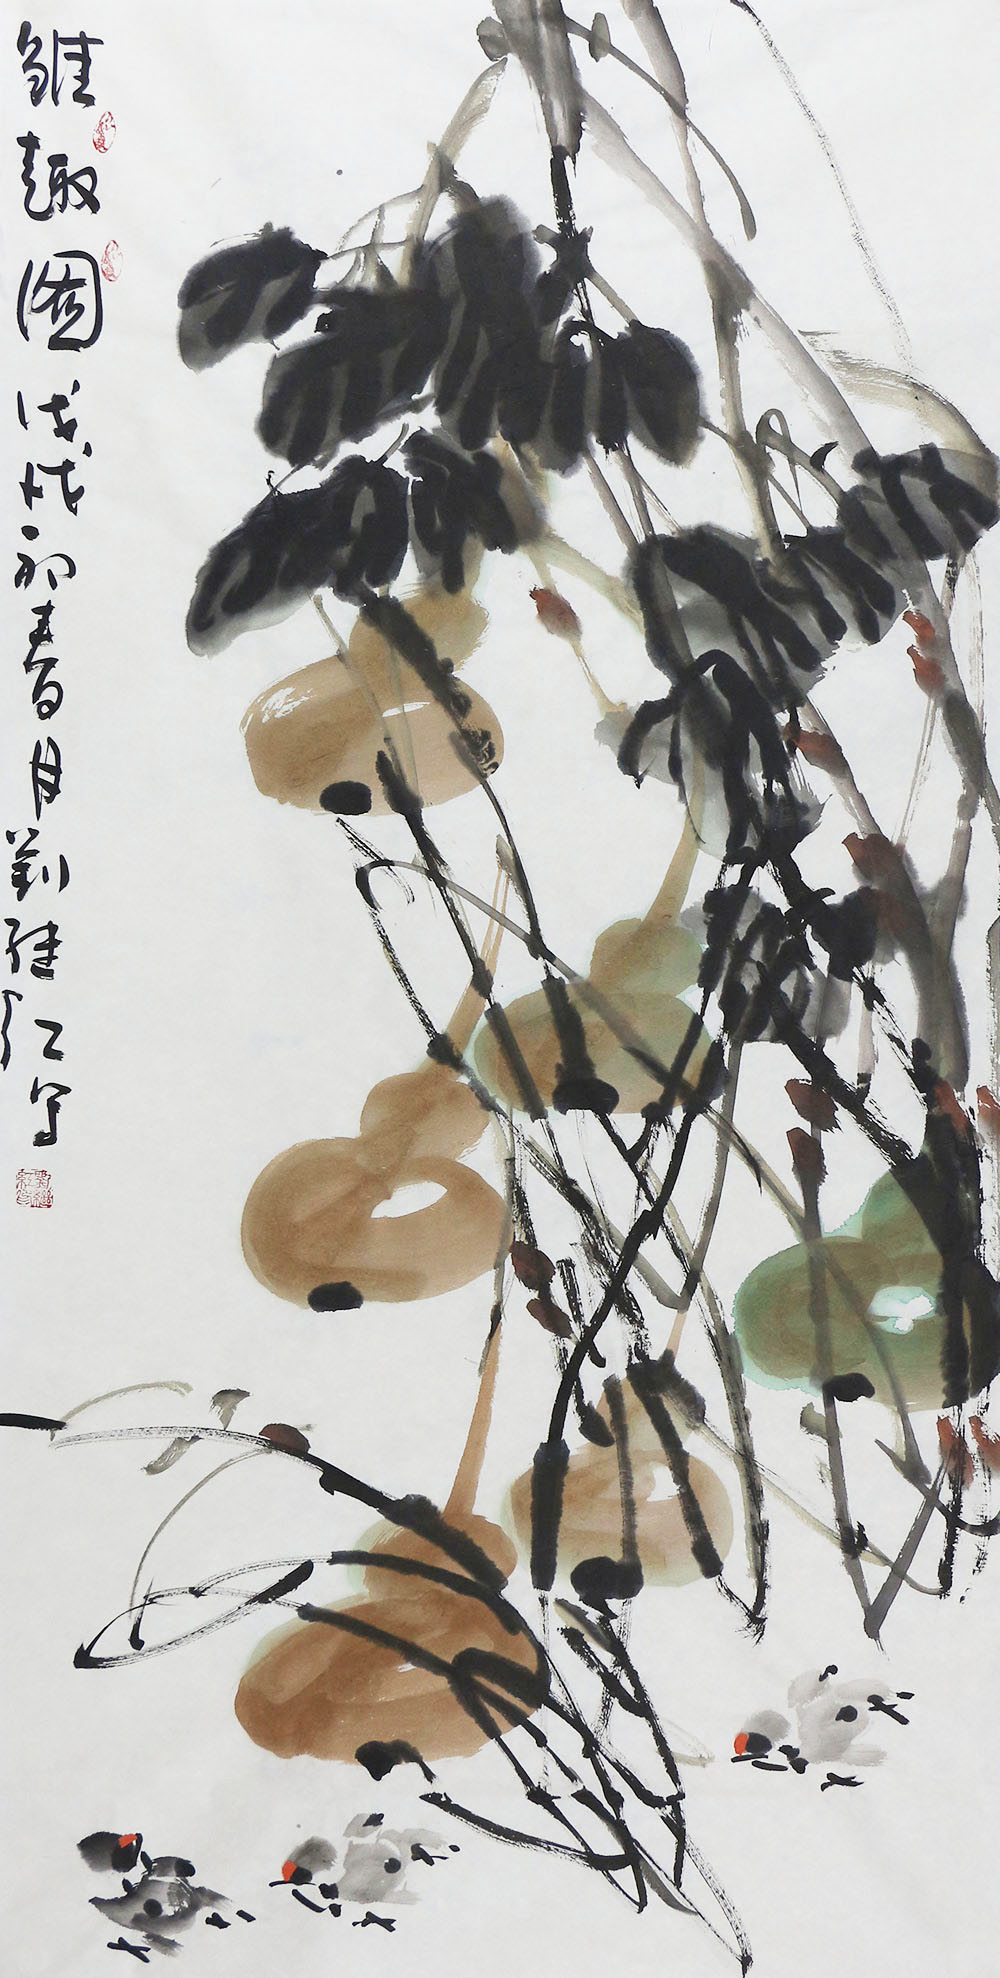 雏趣图戊戌初春月刘继红写